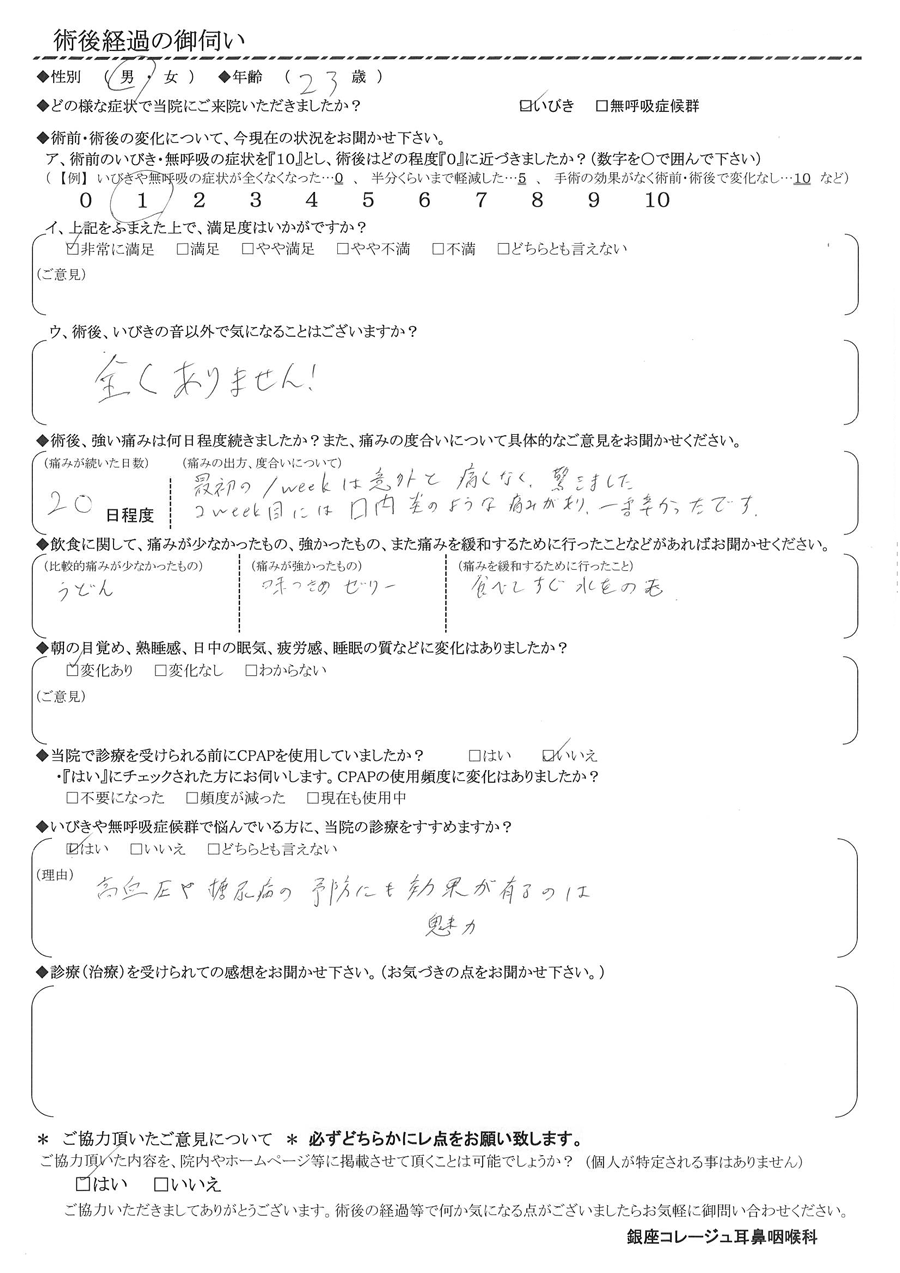 術後経過の御伺い
◆性別 （ 男 ・ 女 ） ◆年齢 （ 23 歳 ）
◆どの様な症状で当院にご来院いただきましたか？ ☑いびき □無呼吸症候群
◆術前・術後の変化について、今現在の状況をお聞かせ下さい。
ア、術前のいびき・無呼吸の症状を『10』とし、術後はどの程度『0』に近づきましたか？（数字を〇で囲んで下さい）
（ 【例】 いびきや無呼吸の症状が全くなくなった…0 、 半分くらいまで軽減した…5 、 手術の効果がなく術前・術後で変化なし…10 など）
0 1 2 3 4 5 6 7 8 9 10
イ、上記をふまえた上で、満足度はいかがですか？
☑非常に満足 □満足 □やや満足 □やや不満 □不満 □どちらとも言えない
（ご意見）
ウ、術後、いびきの音以外で気になることはございますか？
全くありません！
◆術後、強い痛みは何日程度続きましたか？また、痛みの度合いについて具体的なご意見をお聞かせください。
（痛みが続いた日数） （痛みの出方、度合いについて）
最初の1weekは意外と痛くなく、驚きました
20 日程度 2week目には口内炎のような痛みがあり、一番辛かったです.
◆飲食に関して、痛みが少なかったもの、強かったもの、また痛みを緩和するために行ったことなどがあればお聞かせください。
（比較的痛みが少なかったもの） （痛みが強かったもの） （痛みを緩和するために行ったこと）
うどん 味つきのゼリー 食べてすぐ水をのむ
◆朝の目覚め、熟睡感、日中の眠気、疲労感、睡眠の質などに変化はありましたか？
☑変化あり □変化なし □わからない
（ご意見）
◆当院で診療を受けられる前にCPAPを使用していましたか？ □はい ☑いいえ
・『はい』にチェックされた方にお伺いします。CPAPの使用頻度に変化はありましたか？
□不要になった □頻度が減った □現在も使用中
◆いびきや無呼吸症候群で悩んでいる方に、当院の診療をすすめますか？
☑はい □いいえ □どちらとも言えない
（理由） 高血圧や糖尿病の予防にも効果が有るのは
魅力
◆診療（治療）を受けられての感想をお聞かせ下さい。（お気づきの点をお聞かせ下さい。）
＊ ご協力頂いたご意見について ＊ 必ずどちらかにレ点をお願い致します。
ご協力頂いた内容を、院内やホームページ等に掲載させて頂くことは可能でしょうか？ （個人が特定される事はありません）
☑はい □いいえ
ご協力いただきましてありがとうございます。術後の経過等で何か気になる点がございましたらお気軽に御問い合わせください。
銀座コレージュ耳鼻咽喉科